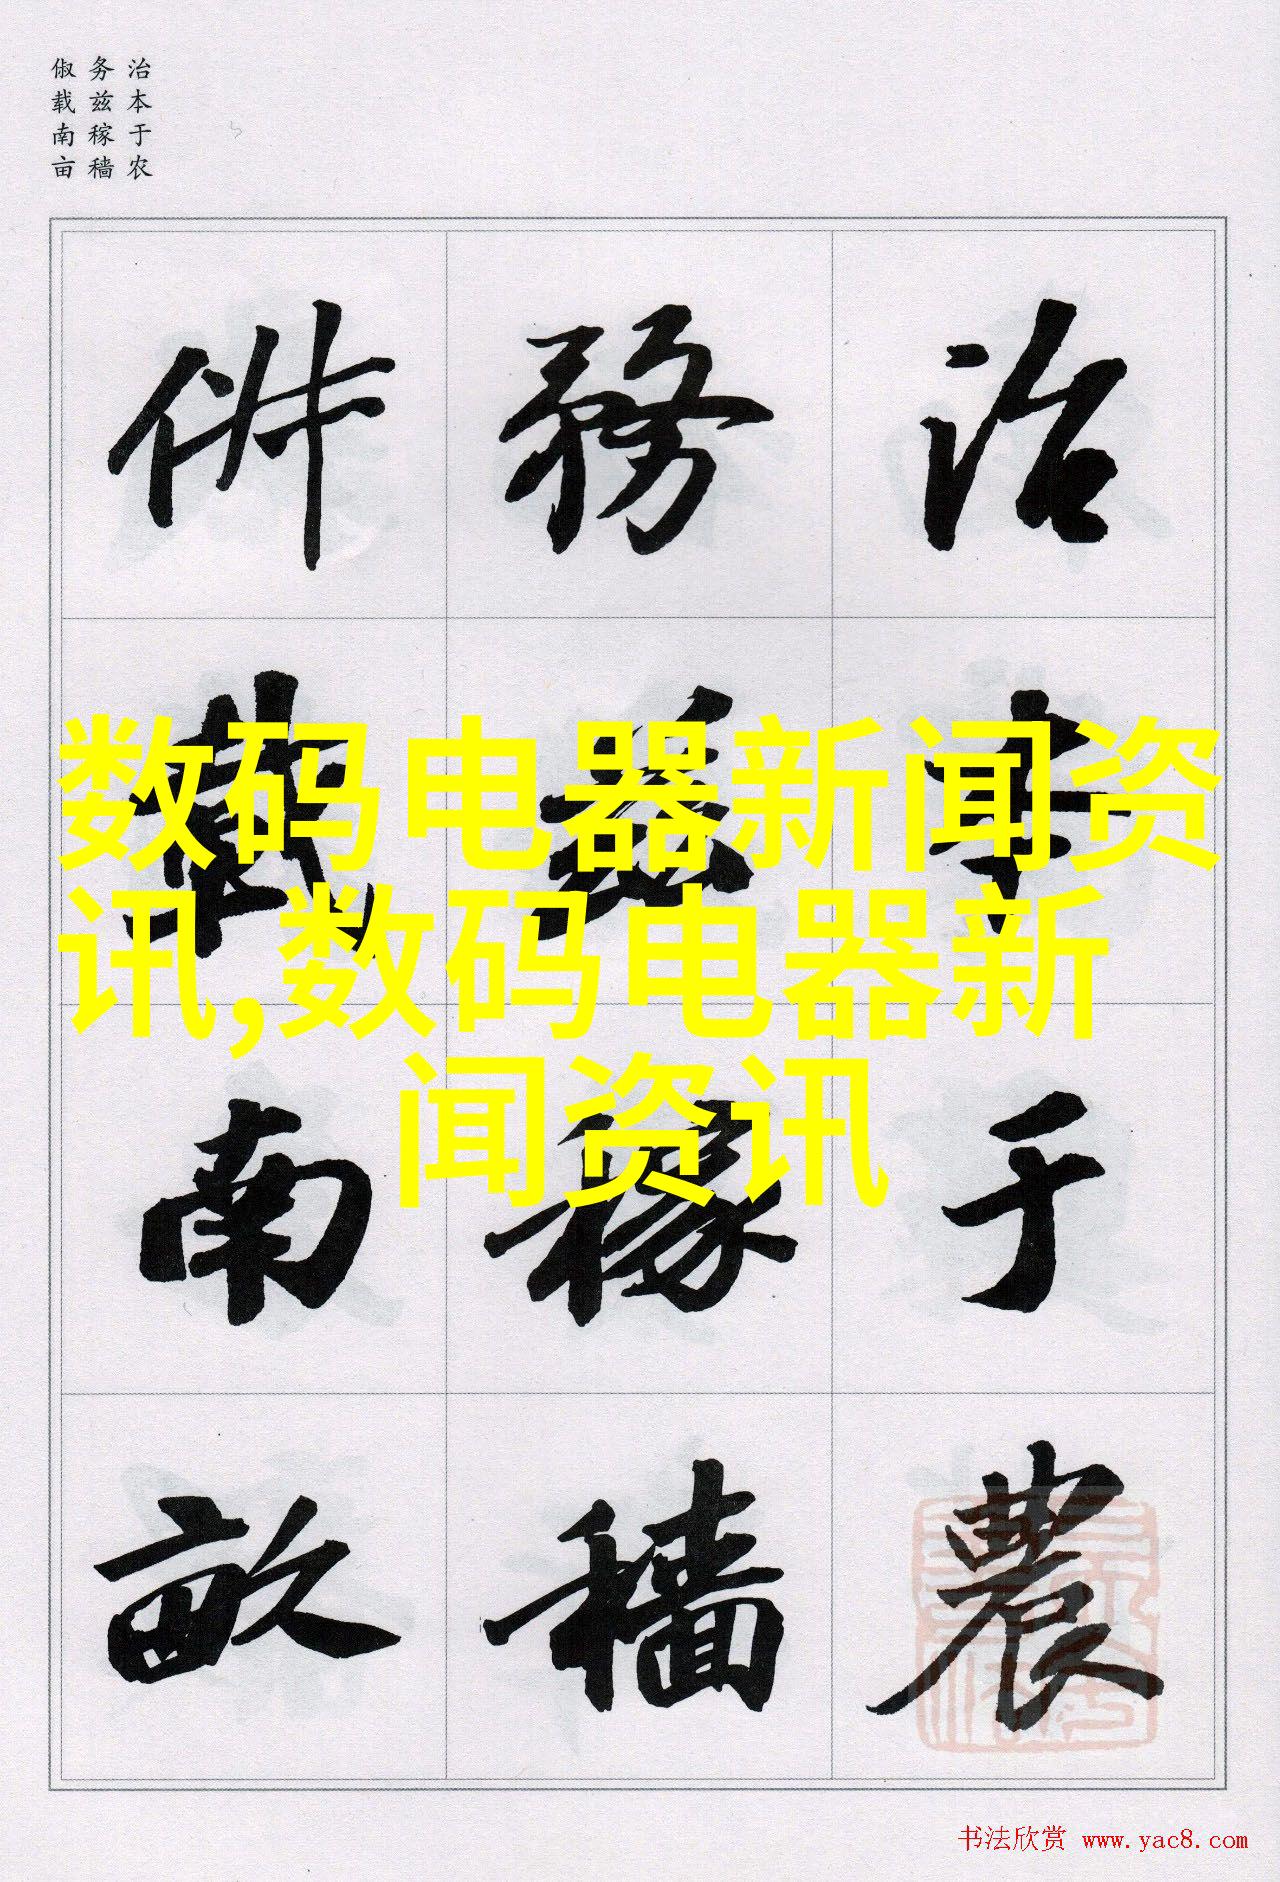 治本于农
务兹稼穑
俶载南亩
治本于農
務茲稼穡
俶載南畝
数码电器新闻资
讯,数码电器新
闻资讯
书法欣赏 www.yac8.com